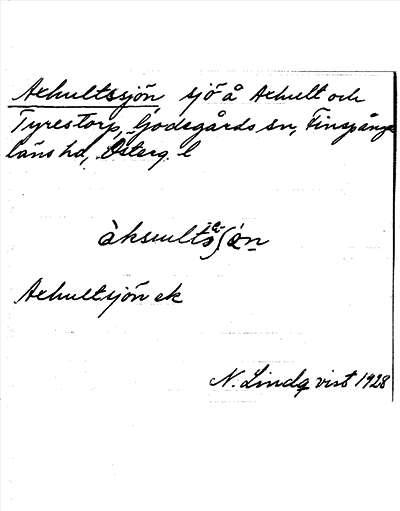 Axhultssjön, sjö å Axhult och
Tyrestorp, Godegårds sn, Finspånga
läns hd, Österg. l
Axhultsjön ek
N. Lindqvist 1928